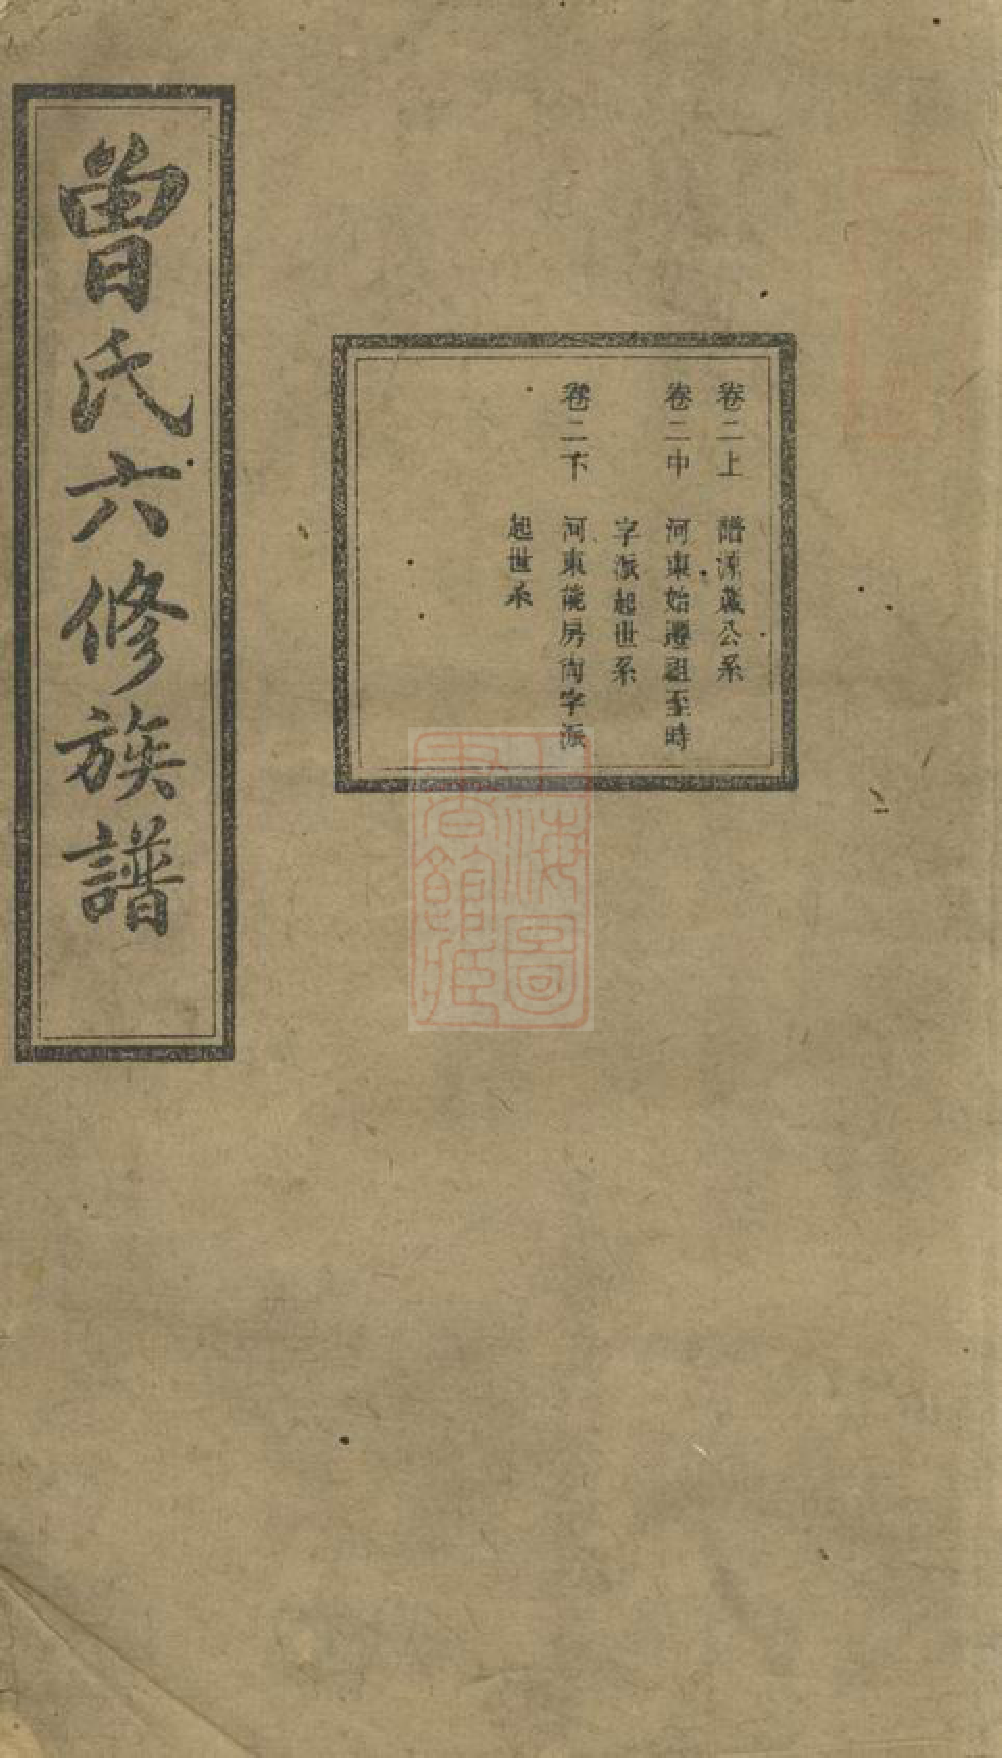 卷二上 譜源蒧公系
卷二中 河東始遷祖至時
字派起世系
卷二下 河東能房尙字派
起世系
曾氏六修族譜
上海圖
書館